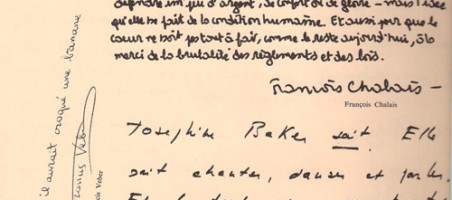 qu'elle se fait de la condition humaine. Et aussi pour que le
cœur ne soit pas tout à fait, comme le reste aujourd'hui, à la
merci de la brutalité des règlements et des lois.
François Chalais
François Chalais
Joséphine Baker sait. Elle
sait chanter, danser et parler.
il aurait croqué une banane
Veber